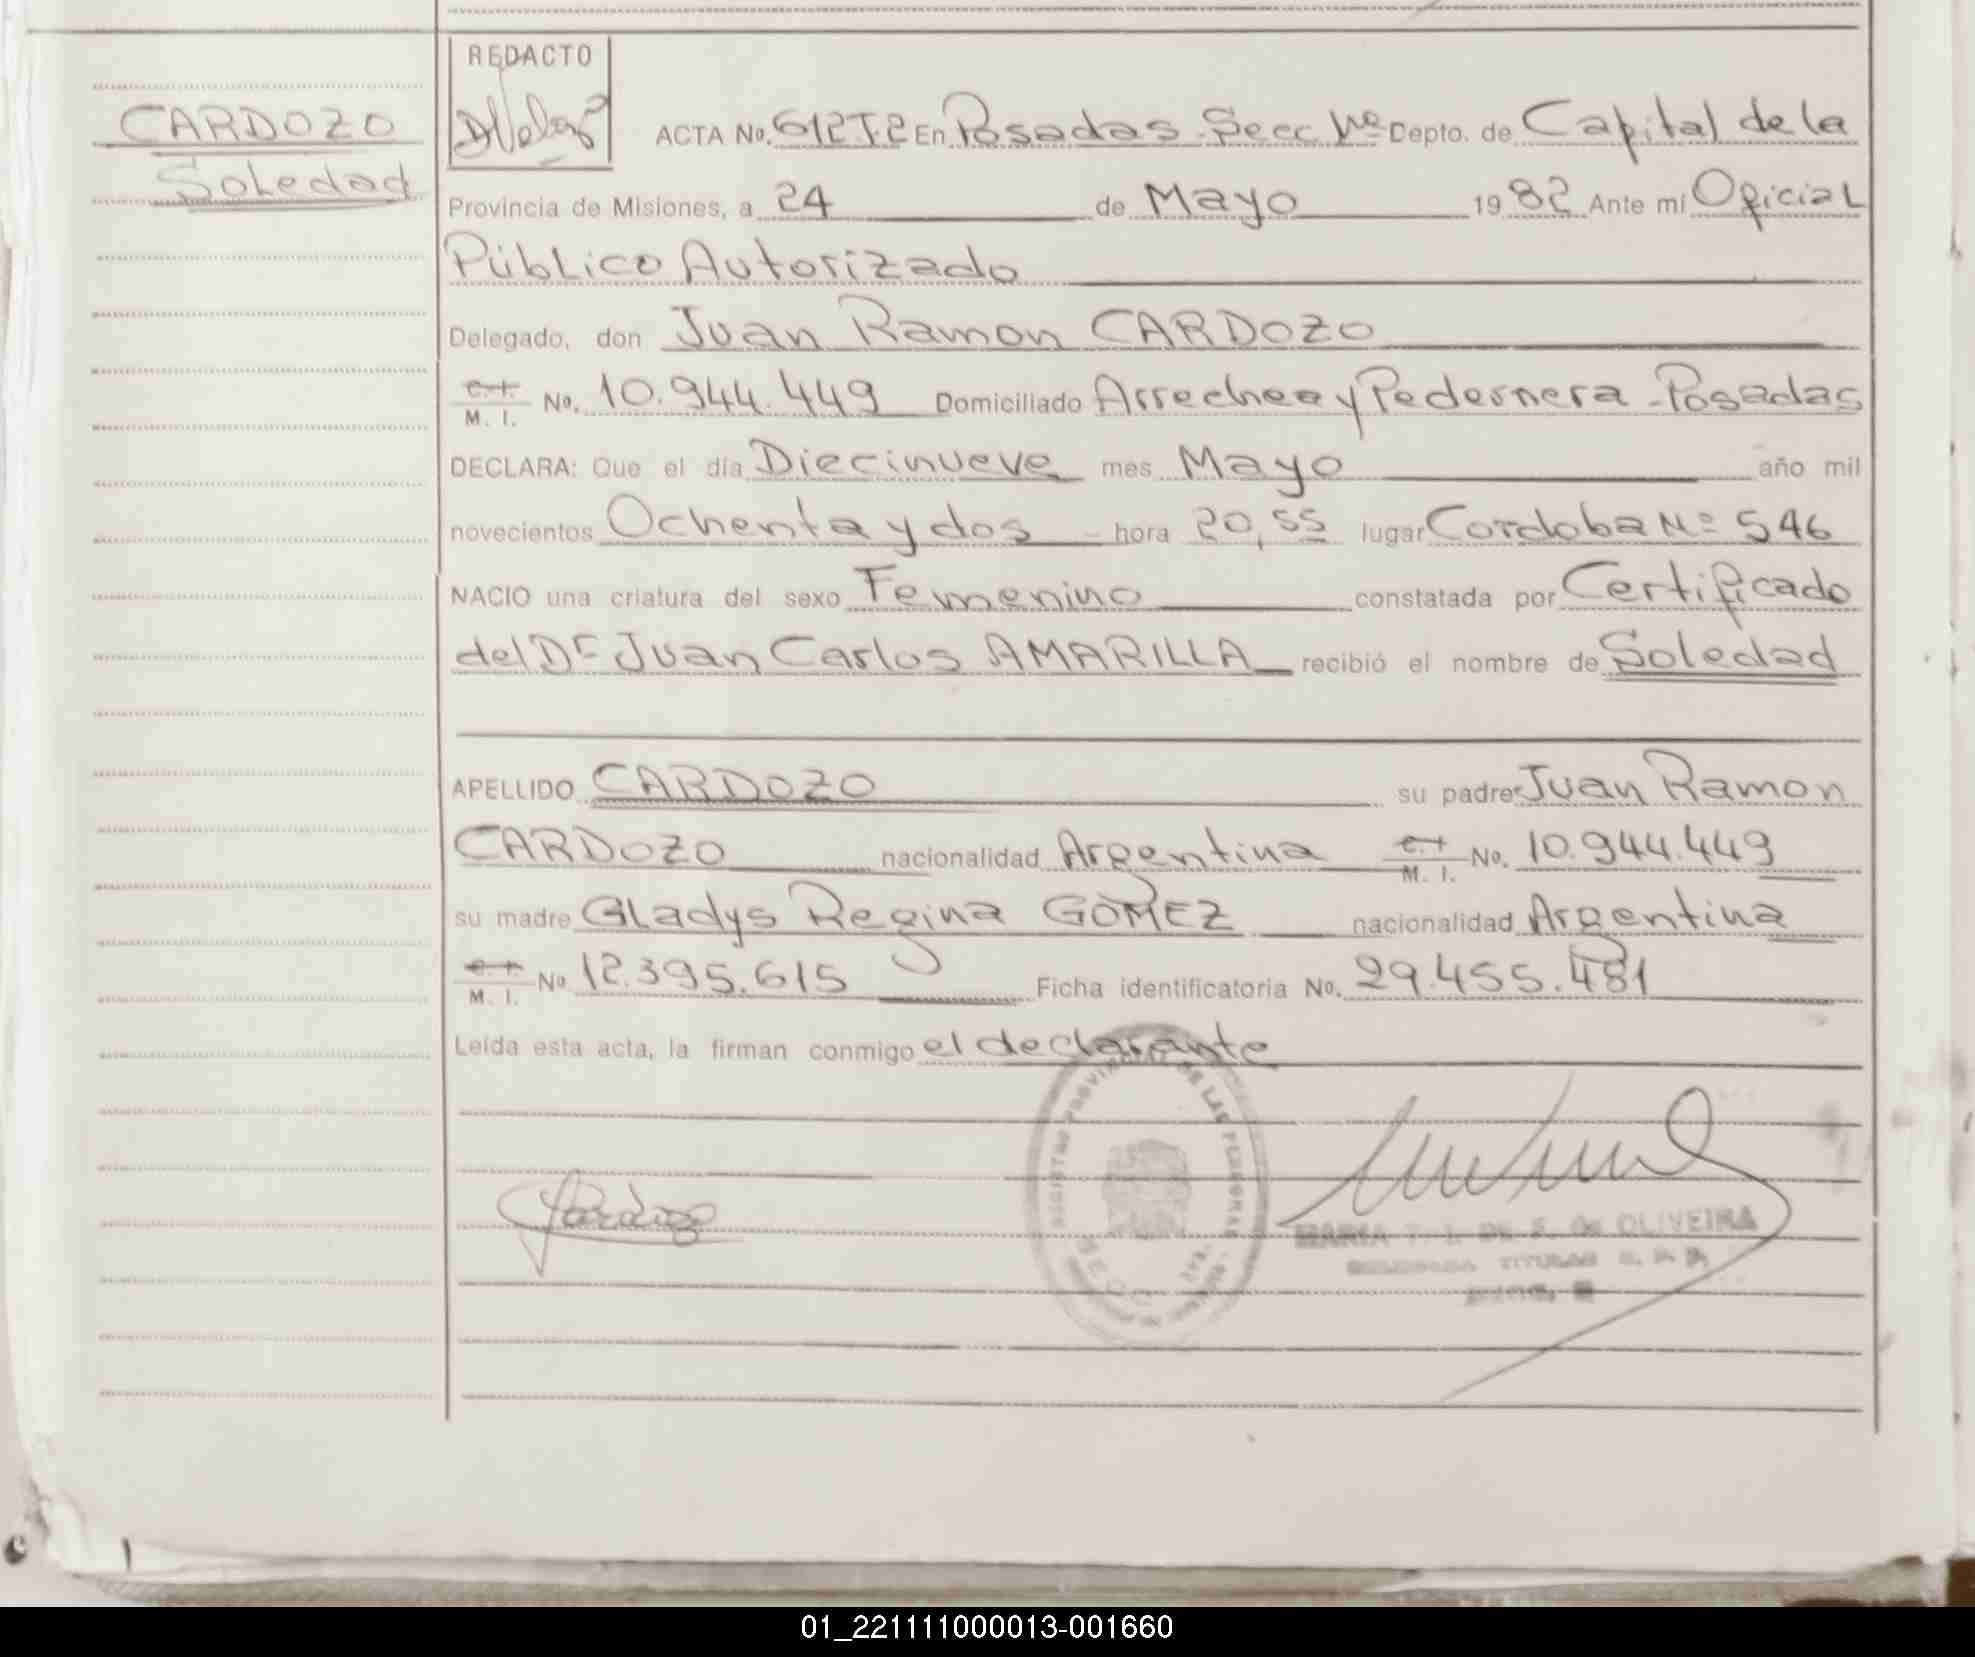 REDACTO
CARDOZO
Soledad
ACTA No. 612 T.2 En Posadas - Secc Nº Depto. de Capital de la
Provincia de Misiones, a 24 de Mayo 1982 Ante mi Oficial
Público Autorizado
Delegado, don Juan Ramon CARDOZO
C. I. M. I. No. 10.944.449 Domiciliado Arrechea y Pedernera - Posadas
DECLARA: Que el día Diecinueve mes Mayo año mil
novecientos Ochenta y dos - hora 20,55 lugar Cordoba Nº 546
NACIO una criatura del sexo Femenino constatada por Certificado
del Dr Juan Carlos AMARILLA recibió el nombre de Soledad
APELLIDO CARDOZO su padre Juan Ramon
CARDOZO nacionalidad Argentina C. I. M. I. No. 10.944.449
su madre Gladys Regina GOMEZ nacionalidad Argentina
C. I. M. I. No 12.395.615 Ficha identificatoria No. 29.455.481
Leída esta acta, la firman conmigo el declarante
Cardozo
PROVINCIAL DE LAS PERSONAS
SECC
MARIA DE OLIVEIRA
TITULAR
01_221111000013-001660